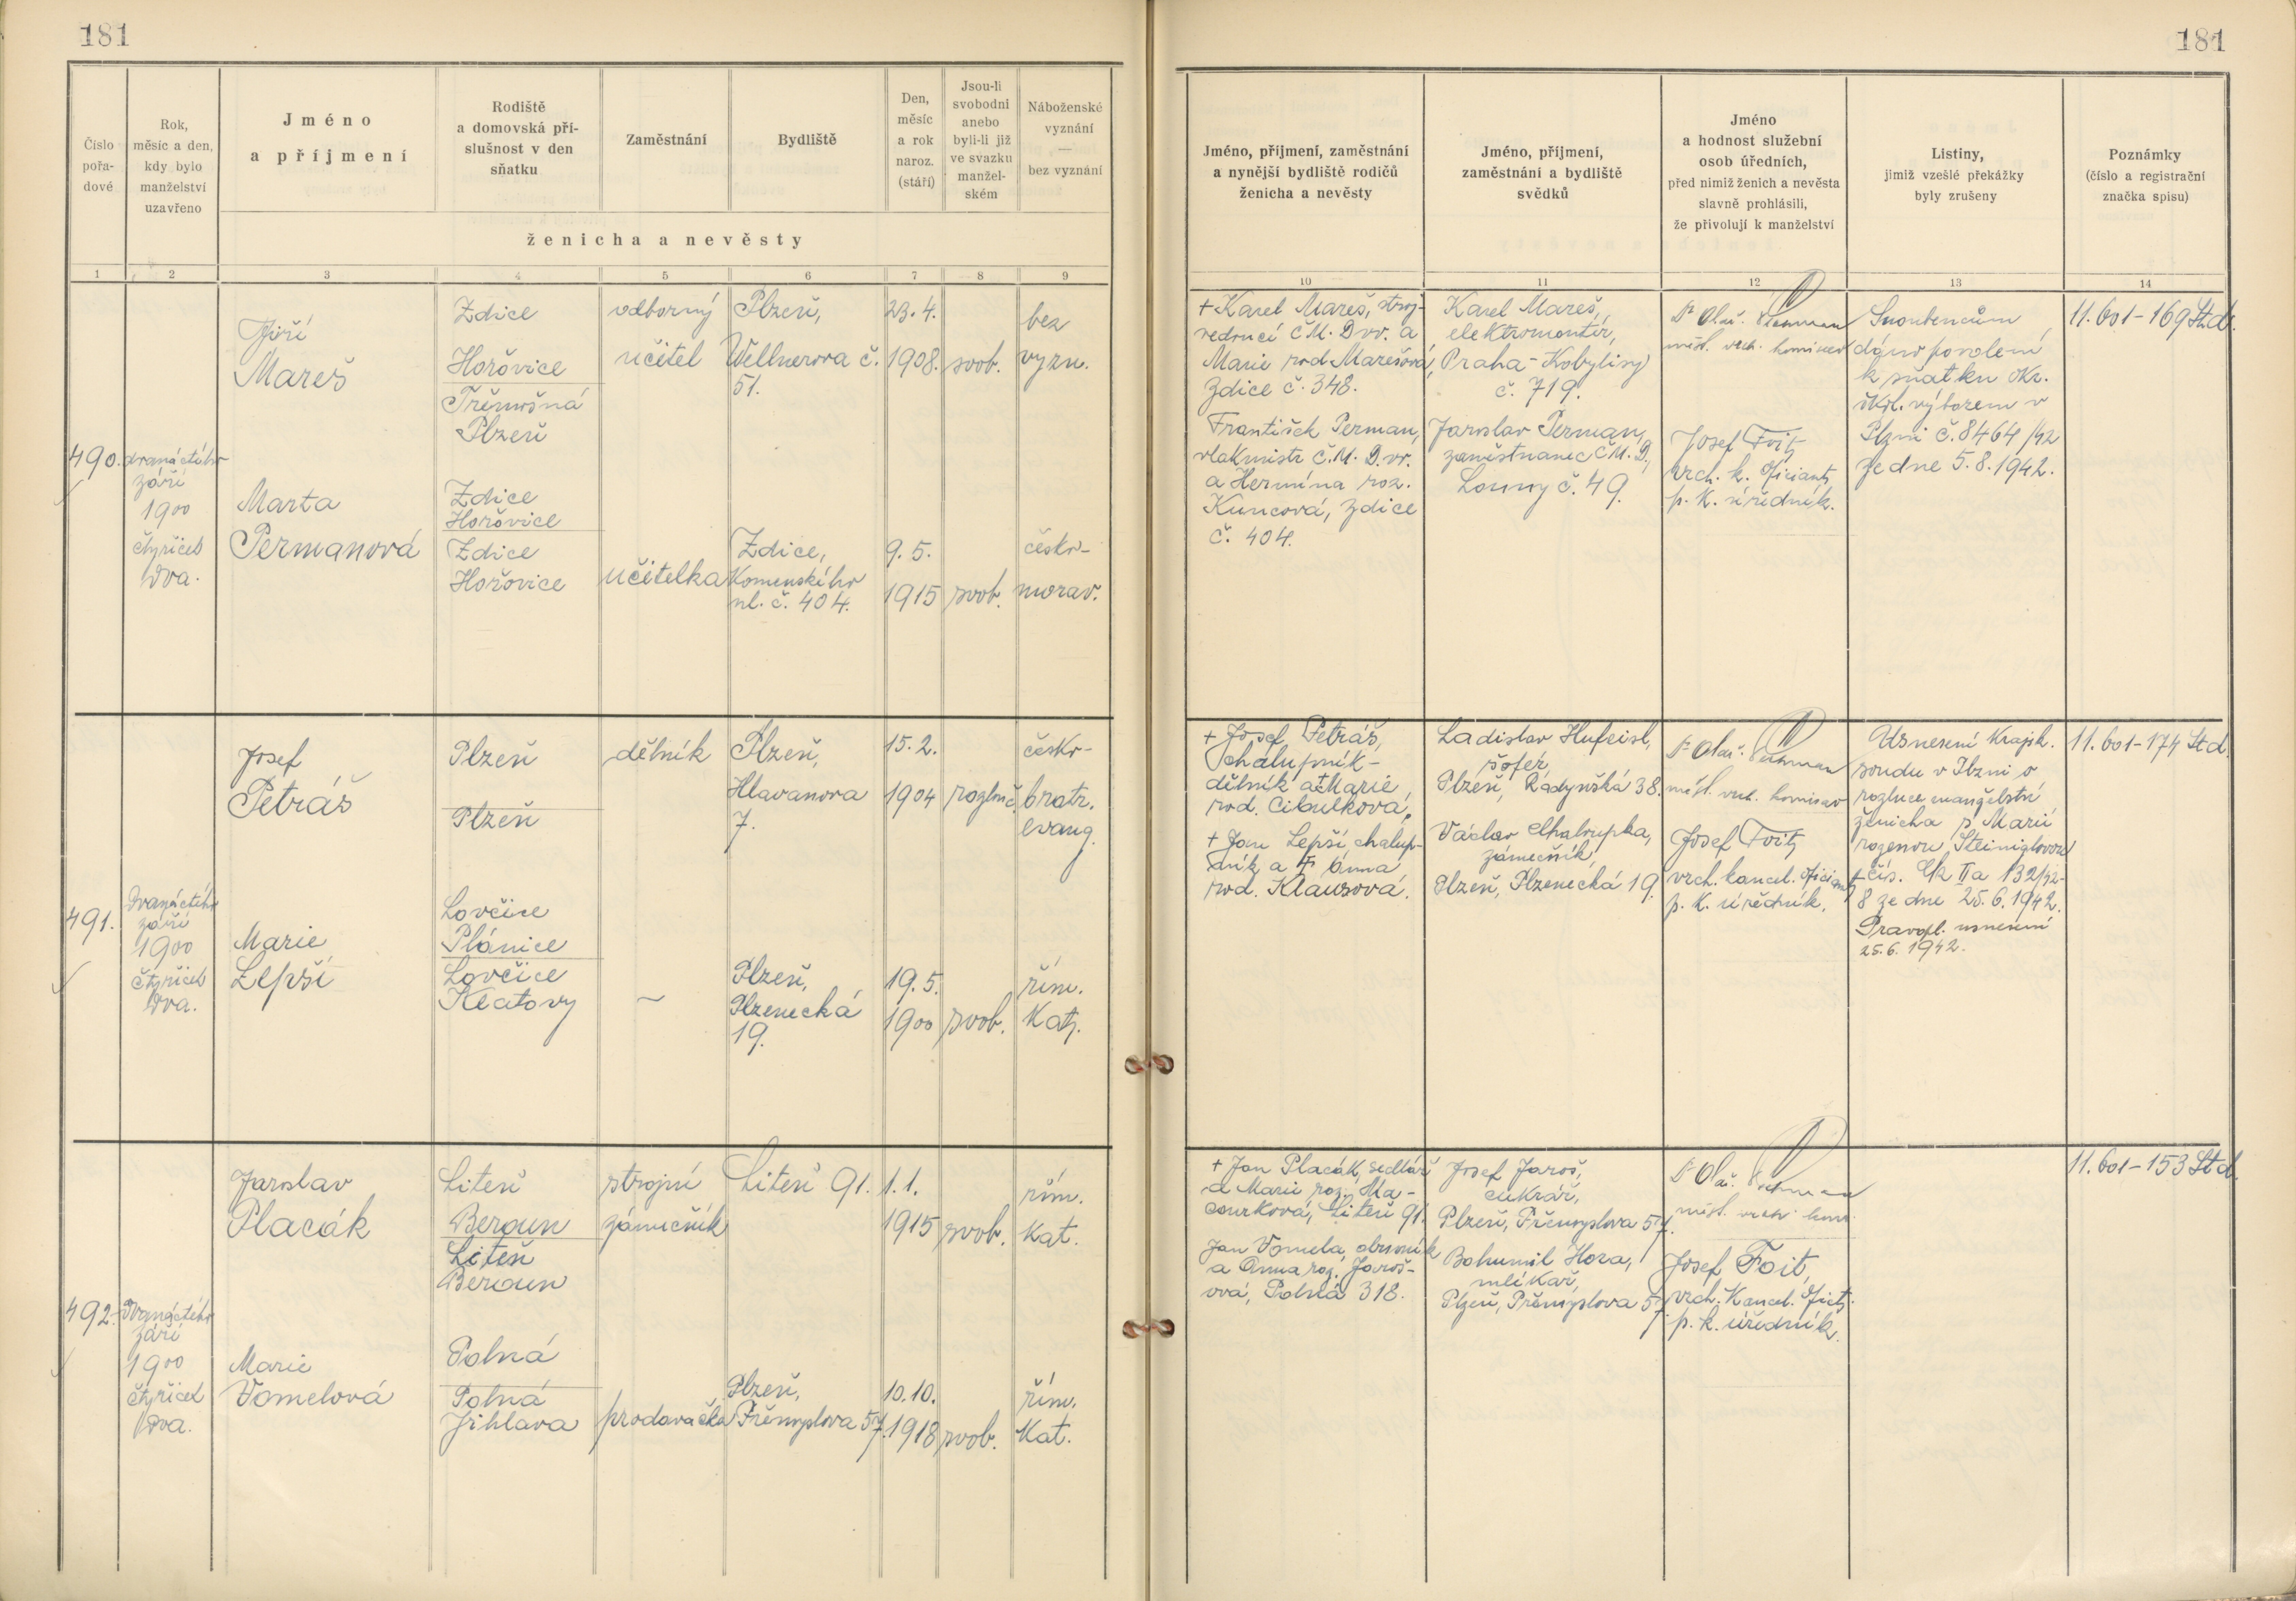 181
181
Číslo
pořa-
dové
Rok,
měsíc a den,
kdy bylo
manželství
uzavřeno
Jméno
a příjmení
Rodiště
a domovská pří-
slušnost v den
sňatku
Zaměstnání
Bydliště
Den,
měsíc
a rok
naroz.
(stáří)
Jsou-li
svobodni
anebo
byli-li již
ve svazku
manžel-
ském
Náboženské
vyznání
—
bez vyznání
ženicha a nevěsty
1 2 3 4 5 6 7 8 9
Jméno, příjmení, zaměstnání
a nynější bydliště rodičů
ženicha a nevěsty
Jméno, příjmení,
zaměstnání a bydliště
svědků
Jméno
a hodnost služební
osob úředních,
před nimiž ženich a nevěsta
slavně prohlásili,
že přivolují k manželství
Listiny,
jimiž vzešlé překážky
byly zrušeny
Poznámky
(číslo a registrační
značka spisu)
10 11 12 13 14
490.
dvanáctého
září
1900
čtyřicet
dva.
Jiří
Mareš
Zdice
Hořovice
Třemošná
Plzeň
odborný
učitel
Plzeň,
Wellnerova č.
51.
23. 4.
1908.
svob.
bez
vyzn.
Marta
Permanová
Zdice
Hořovice
Zdice
Hořovice
učitelka
Zdice,
Komenského
ul. č. 404.
9. 5.
1915
svob.
česko-
morav.
+ Karel Mareš, stroj-
vedoucí ČM. D vv. a
Marie rod. Marešová,
Zdice č. 348.
František Perman,
vlakmistr Č.M. D. vv.
a Hermína roz.
Kuncová, Zdice
č. 404.
Karel Mareš,
elektromontér,
Praha - Kobylisy
č. 719.
Jaroslav Perman,
zaměstnanec ČM. D,
Louny č. 49.
Josef Foit,
vrch. k. oficiant,
p. k. úředník.
Snoubencům
dáno povolení
k sňatku okr.
škol. výborem v
Plzni č. 8464/42
ze dne 5. 8. 1942.
11. 601 - 169 St.d.
491.
Dvanáctého
září
1900
čtyřicet
dva.
Josef
Petráš
Plzeň
Plzeň
dělník
Plzeň,
Hlavanova
7.
15. 2.
1904
rozluč.
česko-
bratr.
evang.
Marie
Lepší
Lovčice
Plánice
Lovčice
Klatovy
~
Plzeň,
Plzenecká
19.
19. 5.
1900
svob.
řím.
Kat.
+ Josef Petráš,
chalupník-
dělník a + Marie
rod. Cibulková,
+ Jan Lepší, chalup-
ník a + Anna
rod. Klausová.
Ladislav Hufeisl,
šofér,
Plzeň, Radyňská 38.
Václav Chaloupka,
zámečník,
Plzeň, Plzenecká 19.
Josef Foit,
vrch. kancel. oficiant
p. k. úředník.
Usnesení Krajsk.
soudu v Plzni o
rozluce manželství
ženicha s Marií
rozenou
čís. Ck II a 132/42-
8 ze dne 25. 6. 1942.
Pravopl. usnesení
25. 6. 1942.
11. 601 - 174 St.d.
492.
Dvanáctého
září
1900
čtyřicet
dva.
Jaroslav
Placák
Liteň
Beroun
Liteň
Beroun
strojní
zámečník
Liteň 91.
1. 1.
1915
svob.
řím.
Kat.
Marie
Vomelová
Polná
Polná
Jihlava
prodavačka
Plzeň,
Přemyslova 57.
10. 10.
1918
svob.
řím.
Kat.
+ Jan Placák, sedlář
a Marie roz. Ma-
courková, Liteň 91.
Jan Vomela, obuvník
a Anna roz. Jaroš-
ová, Polná 318.
Josef Jaroš,
cukrář,
Plzeň, Přemyslova 57.
Bohumil Hora,
mlékař,
Plzeň, Přemyslova 57.
Josef Foit,
vrch. Kancel. ofict.
p. k. úředník.
11. 601 - 153 St.d.